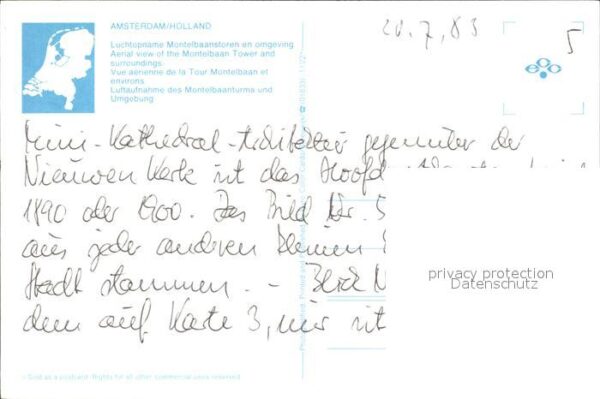 AMSTERDAM/HOLLAND
Luchtopname Montelbaanstoren en omgeving
Aerial view of the Montelbaan Tower and
surroundings.
Vue aérienne de la Tour Montelbaan et
environs.
Luftaufnahme des Montelbaanturms und
Umgebung
20.7.83
5
Mini-Kathedral-Architektur gegenüber der
Nieuwen Kerk ist das
1890 oder 1900. Das Bild Nr. 5
aus jeder anderen kleinen
Stadt stammen. - Blick
dem auf Karte 3, nur ist
privacy protection
Datenschutz